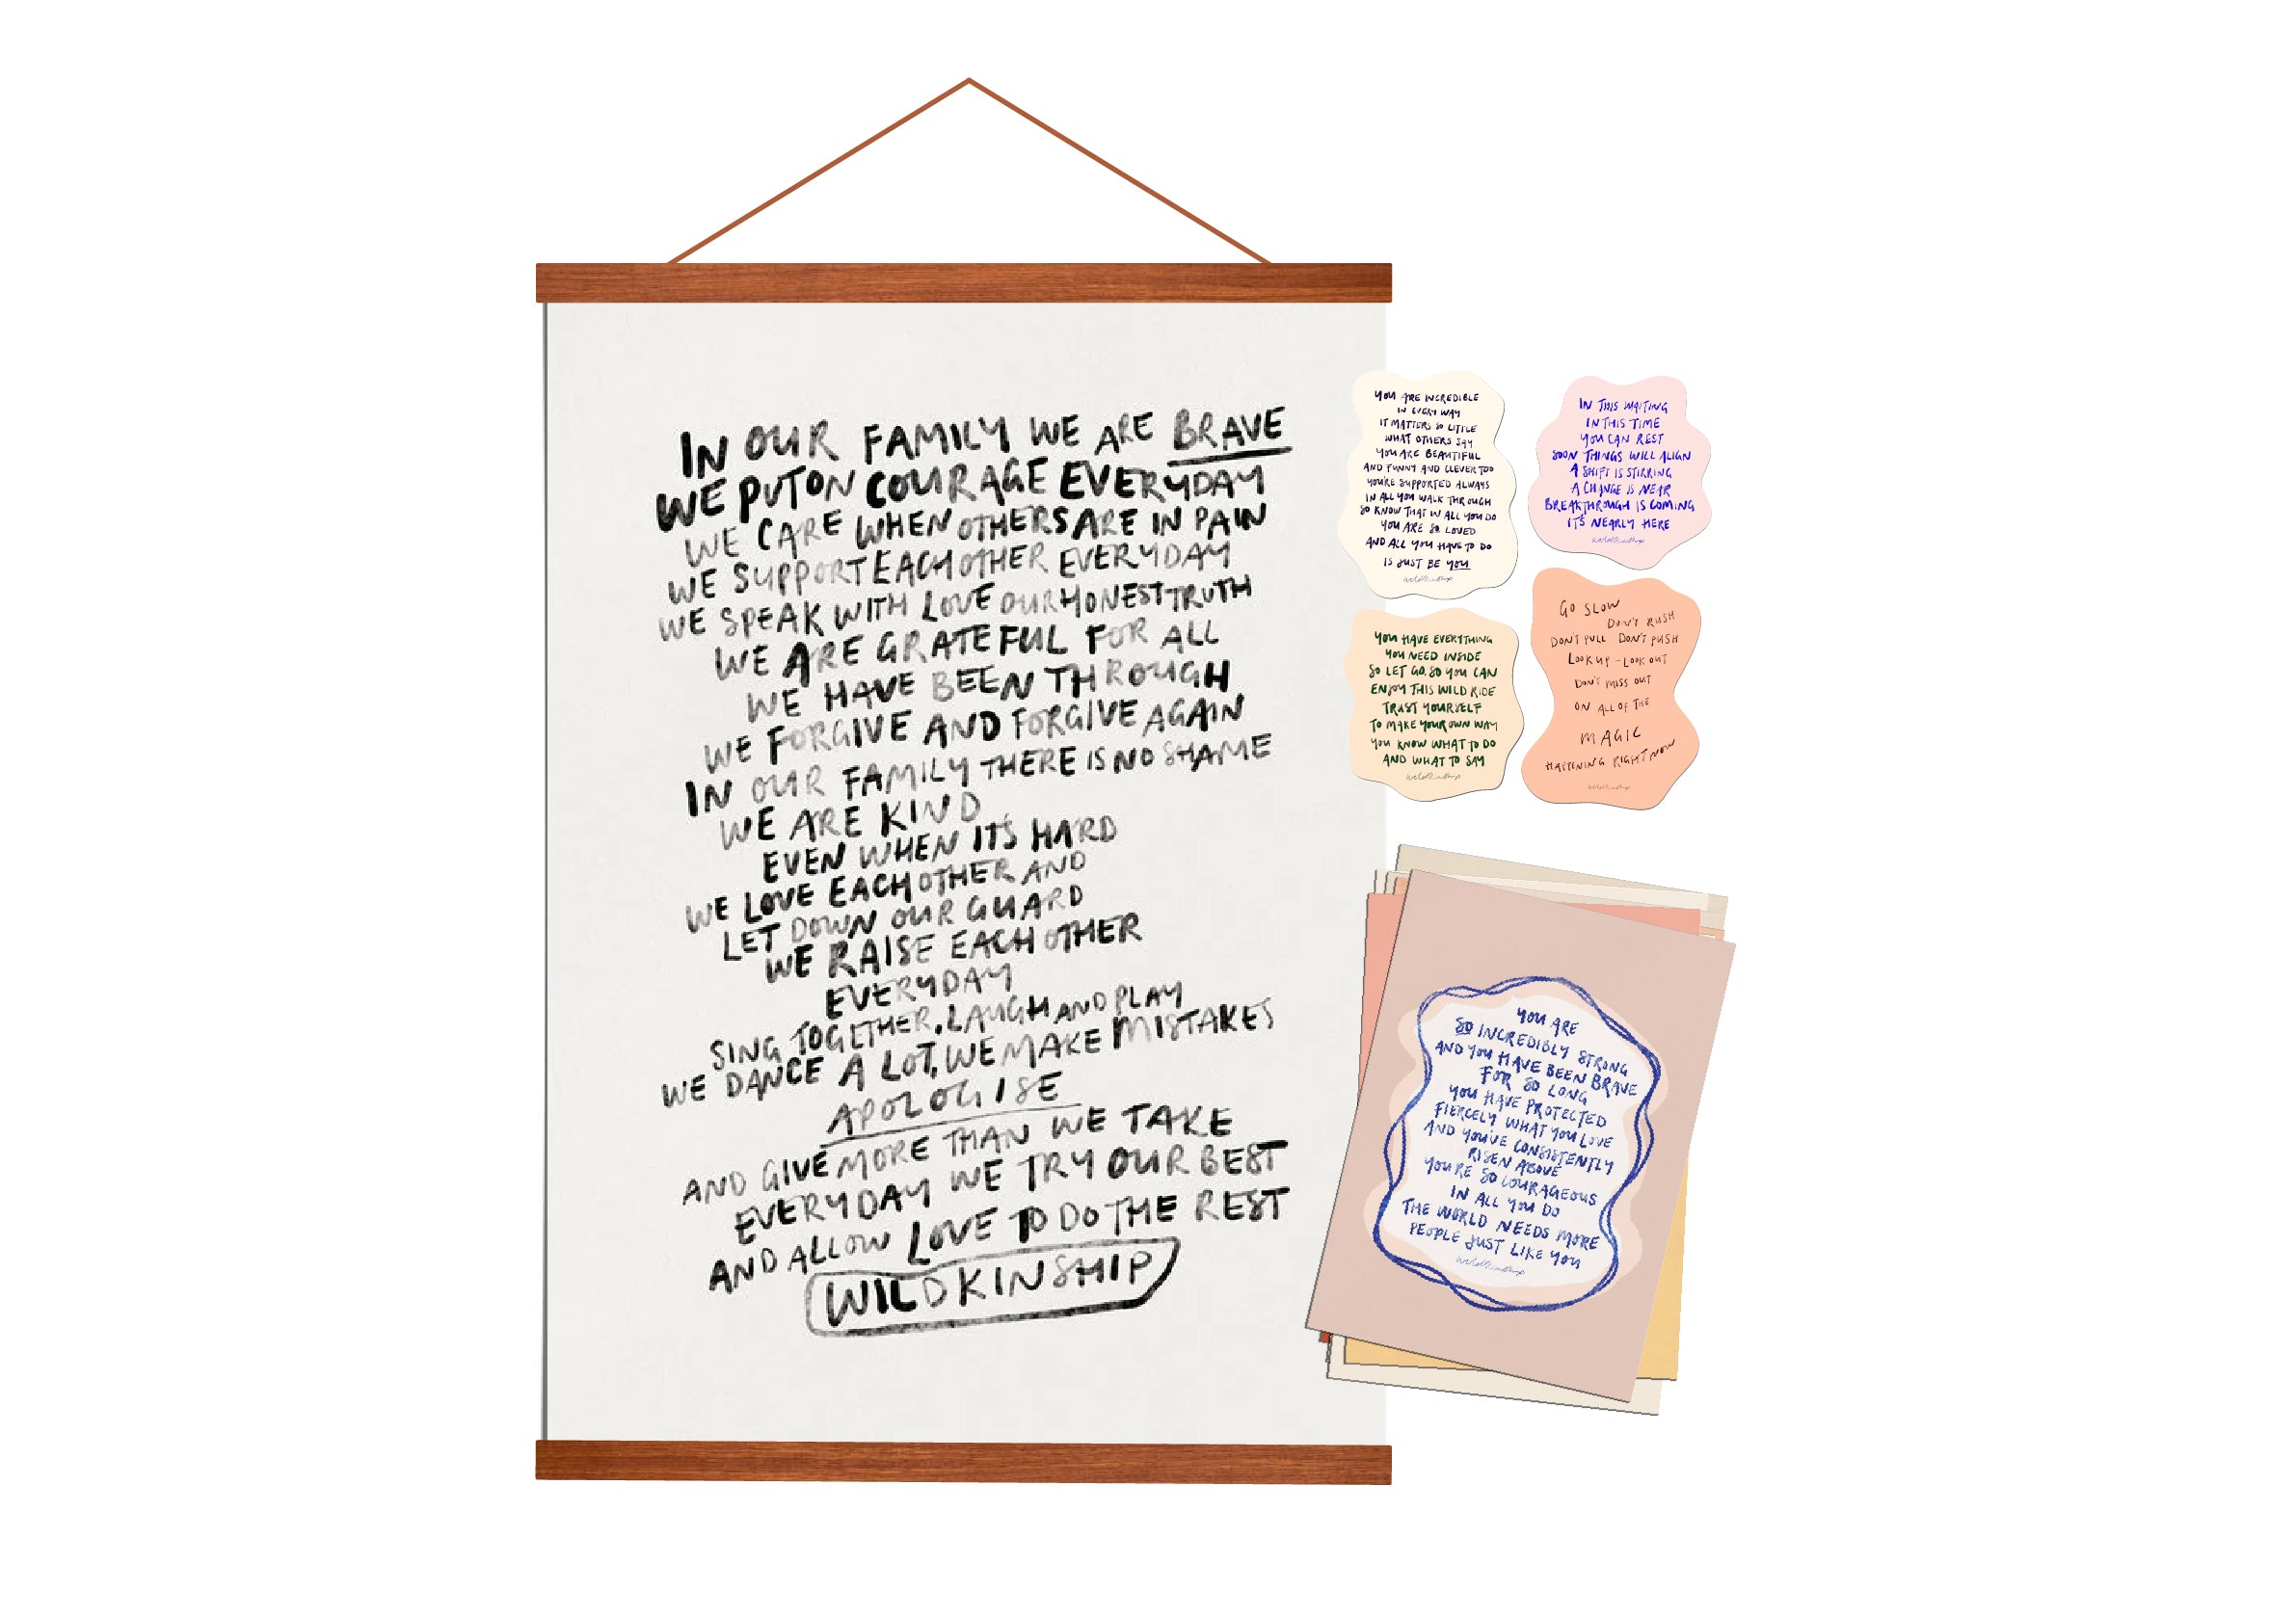 IN OUR FAMILY WE ARE BRAVE
WE PUT ON COURAGE EVERYDAY
WE CARE WHEN OTHERS ARE IN PAIN
WE SUPPORT EACH OTHER EVERYDAY
WE SPEAK WITH LOVE OUR HONEST TRUTH
WE ARE GRATEFUL FOR ALL
WE HAVE BEEN THROUGH
WE FORGIVE AND FORGIVE AGAIN
IN OUR FAMILY THERE IS NO SHAME
WE ARE KIND
EVEN WHEN IT'S HARD
WE LOVE EACH OTHER AND
LET DOWN OUR GUARD
WE RAISE EACH OTHER
EVERYDAY
SING TOGETHER, LAUGH AND PLAY
WE DANCE A LOT, WE MAKE MISTAKES
APOLOGISE
AND GIVE MORE THAN WE TAKE
EVERYDAY WE TRY OUR BEST
AND ALLOW LOVE TO DO THE REST
WILDKINSHIP
YOU ARE INCREDIBLE
IN EVERY WAY
IT MATTERS SO LITTLE
WHAT OTHERS SAY
YOU ARE BEAUTIFUL
AND FUNNY AND CLEVER TOO
YOU'RE SUPPORTED ALWAYS
IN ALL YOU WALK THROUGH
SO KNOW THAT IN ALL YOU DO
YOU ARE SO LOVED
AND ALL YOU HAVE TO DO
IS JUST BE YOU
wildkinship
IN THIS WAITING
IN THIS TIME
YOU CAN REST
SOON THINGS WILL ALIGN
A SHIFT IS STIRRING
A CHANGE IS NEAR
BREAKTHROUGH IS COMING
IT'S NEARLY HERE
wildkinship
YOU HAVE EVERYTHING
YOU NEED INSIDE
SO LET GO, SO YOU CAN
ENJOY THIS WILD RIDE
TRUST YOURSELF
TO MAKE YOUR OWN WAY
YOU KNOW WHAT TO DO
AND WHAT TO SAY
wildkinship
GO SLOW
DON'T RUSH
DON'T PULL DON'T PUSH
LOOK UP - LOOK OUT
DON'T MISS OUT
ON ALL OF THE
MAGIC
HAPPENING RIGHT NOW
wildkinship
YOU ARE
SO INCREDIBLY STRONG
AND YOU HAVE BEEN BRAVE
FOR SO LONG
YOU HAVE PROTECTED
FIERCELY WHAT YOU LOVE
AND YOU'VE CONSISTENTLY
RISEN ABOVE
YOU'RE SO COURAGEOUS
IN ALL YOU DO
THE WORLD NEEDS MORE
PEOPLE JUST LIKE YOU
wildkinship